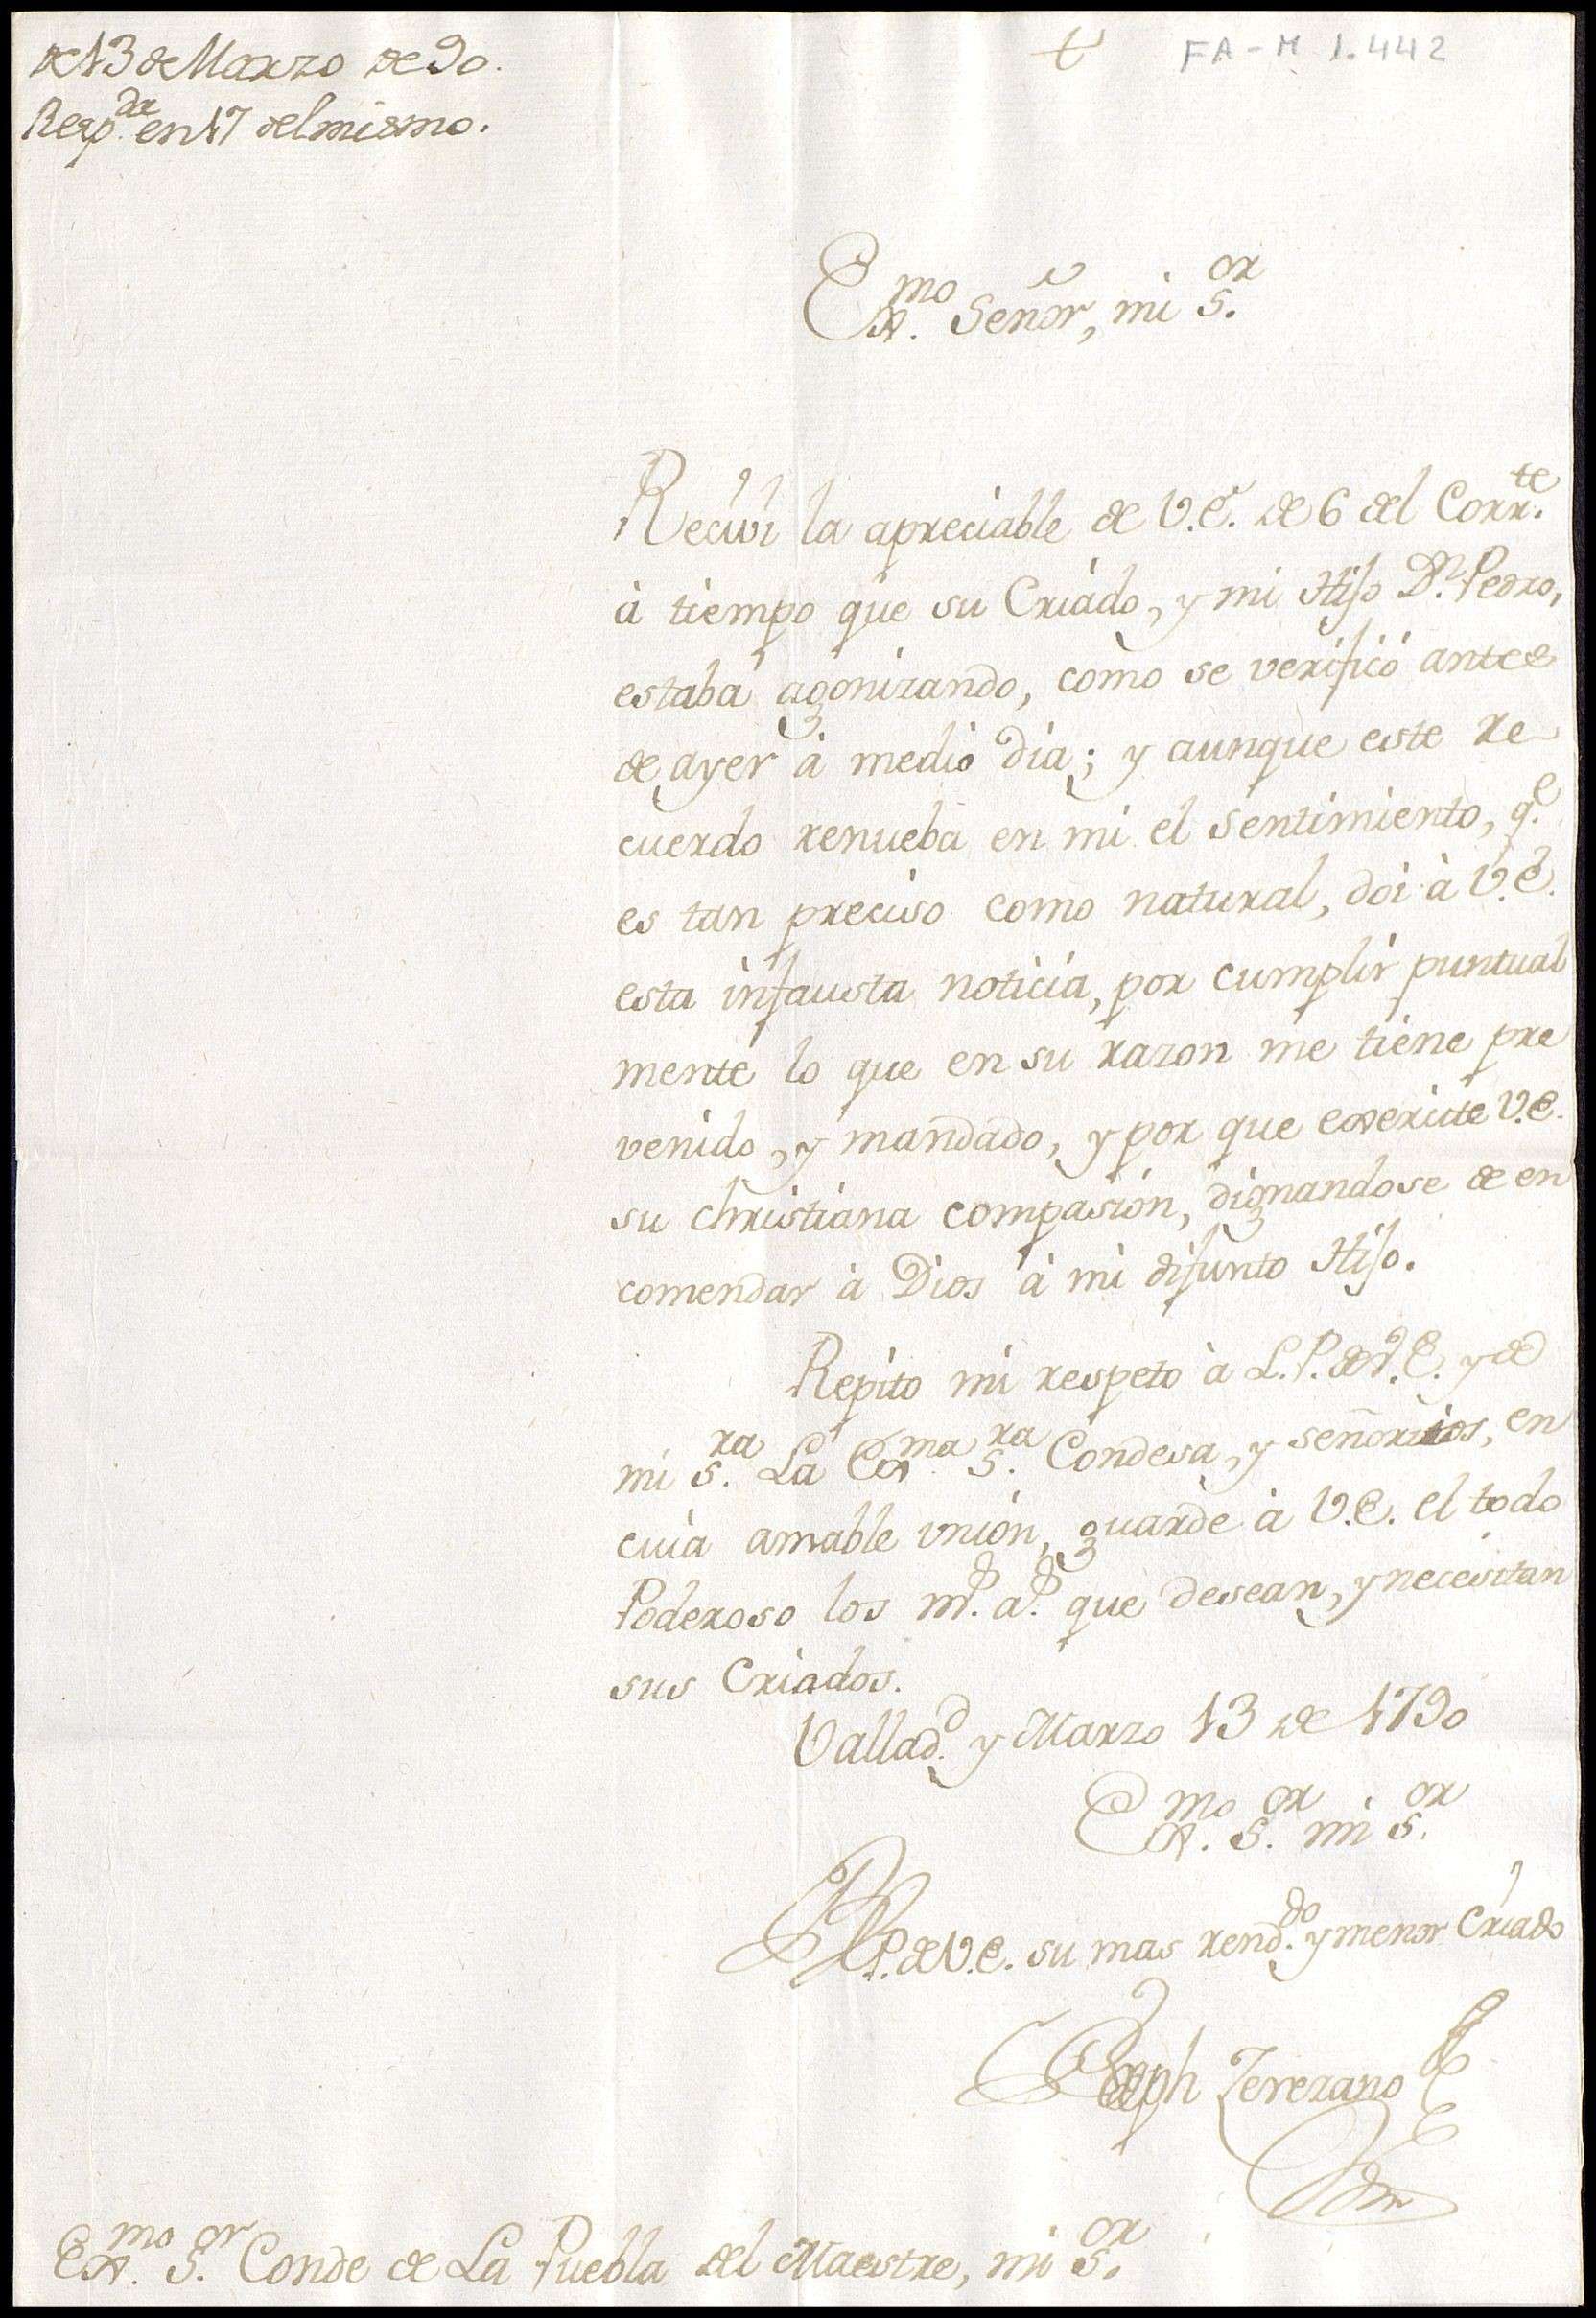 de 13 de Marzo de 90.
Resp.da en 17 del mismo.
FA-M 1.442
Ex.mo Señor, mi S.or
Reciví la apreciable de V.E. de 6 del Corr.te
à tiempo que su Criado, y mi Hijo D.n Pedro,
estaba agonizando, como se verificó antes
de ayer à medio dia; y aunque este re
cuerdo renueba en mi el sentimiento, q.e
es tan preciso como natural, doi à V.E.
esta infausta noticia, por cumplir puntual
mente lo que en su razon me tiene pre
venido, y mandado, y por que exercite V.E.
su christiana compasion, dignandose de en
comendar à Dios à mi difunto Hijo.
Repito mi respeto à L.P. de V.E. y de
mi S.ra La Ex.ma S.ra Condesa, y señoritos, en
cuia amable union, guarde à V.E. el todo
Poderoso los m.s a.s que desean, y necesitan
sus Criados.
Vallad.d y Marzo 13 de 1790
Ex.mo S.or mi S.or
P. de V.E. su mas rend.do y menor Criado
Joseph Zerezano
Ex.mo S.or Conde de La Puebla del Maestre, mi S.or